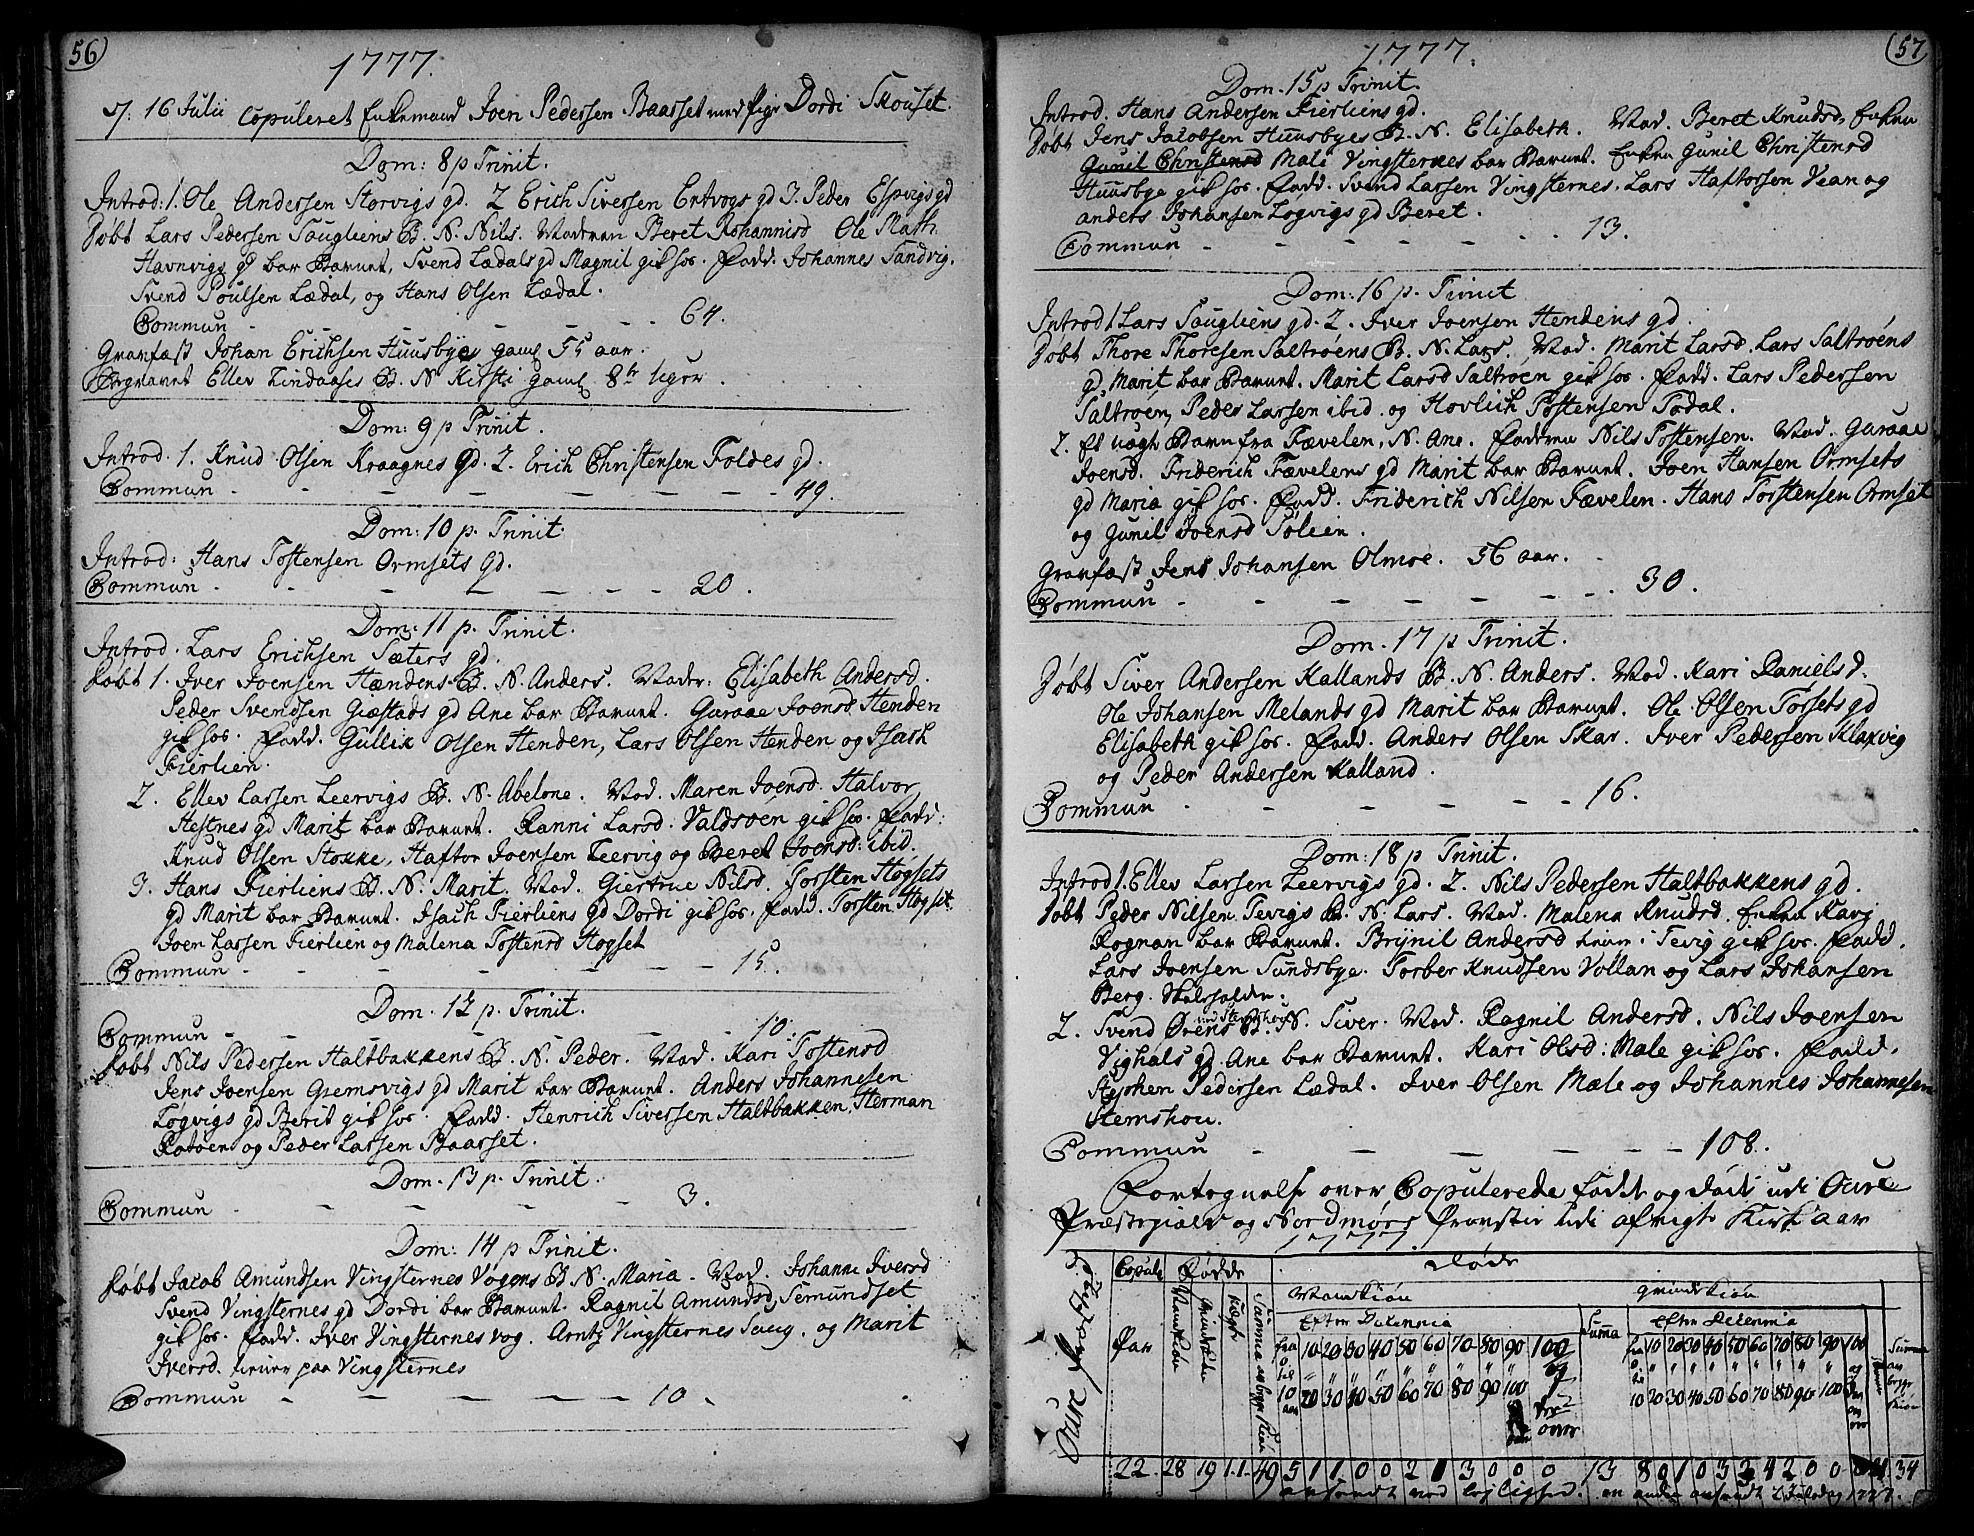 56
1777.
16 Julii Copuleret Enkemand Joen Pedersen Baasset med Pige Dordi Skouset.
Dom: 8 p Trinit.
Introd: 1. Ole Andersen Storvigs gd. 2 Erich Siversen Ertvogs gd 3. Peder Espvigs gd
Døbt Lars Pedersen Taugliens B. N. Nils. Moderen Beret Johannisd Ole Math.
Havnvigs gd bar Barnet, Svend Lædals gd Magnil gik hos. Fadd. Johannes Sandvig.
Svend Poulsen Lædal, og Hans Olsen Lædal.
Commun - - - - - - 64.
Gravfæst Johan Erichsen Huusbye gaml 55 aar.
Begravet Ellev Lindaases B. N Kirsti gaml 8te uger.
Dom: 9 p Trinit.
Introd. 1. Knud Olsen Kraagnes gd. 2. Erich Christensen Foldes gd.
Commun - - - - - - - 49.
Dom: 10 p. Trinit.
Introd: Hans Tostensen Ormsets gd.
Commun - - - - - - 20.
Dom: 11 p. Trinit.
Introd. Lars Erichsen Sæters gd.
Døbt 1. Iver Joensen Hændens B. N. Anders. Moder: Elisabeth Andersd.
Peder Svendsen Giæstads gd Ane bar Barnet. Guraae Joensd Henden
gik hos. Fadd. Gullik Olsen Henden, Lars Olsen Henden og Isach
Fierlien.
2. Ellev Larsen Leervigs B. N. Abelone. Mod. Maren Joensd. Halvor
Hestnes gd Marit bar Barnet. Ranni Larsd. Valdsøen gik hos. Fadd:
Knud Olsen Stokke, Haftor Joensen Leervig og Beret Joensd: ibid.
3. Hans Fierliens B. N. Marit. Mod. Giertrue Nilsd. Torsten Høgsets
gd Marit bar Barnet. Isach Fierliens gd Dordi gik hos. Fadd. Torsten Høgset.
Joen Larsen Fierlien og Malena Tostensd Høgset
Commun - - - - - - 15.
Dom. 12 p. Trinit.
Commun - - - - - - 10.
Døbt Nils Pedersen Haltbakkens B. N. Peder. Mod. Kari Tostensd
Jens Joensen Gremsvigs gd Marit bar Barnet. Anders Johannesen
Logvigs gd Berit gik hos. Fadd. Henrich Siversen Haltbakken, Herman
Rotøen og Peder Larsen Baarset.
Dom. 13 p. Trinit.
Commun - - - - - - 3.
Dom: 14 p Trinit.
Døbt Jacob Amundsen Vingsternes Vogens B. N. Maria. Mod. Johanne Iversd
Svend Vingsternes gd Dordi bar Barnet. Ragnil Amundsd, Semundset
gik hos. Fadd. Iver Vingsternes vog. Arntz Vingsternes Sveig, og Marit
Iversd. tiener paa Vingsternes
Commun - - - - - 10.
57
1777.
Dom. 15 p Trinit.
Introd. Hans Andersen Fierliens gd.
Døbt Jens Jacobsen Huusbyes B. N. Elisabeth. Mod. Beret Knudsd, Enken
Gunil Christensd Male Vingsternes bar Barnet. Enken Gunil Christensd
Huusbye gik hos. Fadd. Svend Larsen Vingsternes, Lars Haftorsen Vean og
anders Johansen Logvigs gd Beret.
Commun - - - - - - 13.
Dom: 16 p. Trinit
Introd 1 Lars Taugliens gd. 2. Iver Joensen Hendens gd.
Døbt Thore Thoresen Saltrøens B. N. Lars. Mod. Marit Larsd. Lars Saltrøens
gd. Marit bar Barnet. Marit Larsd Saltrøen gik hos. Fadd. Lars Pedersen
Saltrøen, Peder Larsen ibid. og Hovlich Tostensen Todal.
2. Et uægte Barn fra Fævelen, N. Ane. Faderen Nils Tostensen. Mod. Guraae
Joensd. Friderich Fævelens gd Marit bar Barnet. Joen Hansen Ormsets
gd Maria gik hos. Fadd. Friderich Nilsen Fævelen. Hans Torstensen Ormset
og Gunil Joensd Toleen.
Gravfæst Jens Johansen Olmoe. 56 aar.
Commun - - - - - - 30.
Dom. 17 p Trinit.
Døbt Siver Andersen Kallands B. N. Anders. Mod. Kari Daniels d.
Ole Johansen Melands gd Marit bar Barnet. Ole Olsen Torsets gd
Elisabeth gik hos. Fadd. Anders Olsen Skar. Iver Pedersen Klakvig
og Peder Andersen Kalland.
Commun - - - - - - 16.
Dom: 18 p Trinit.
Introd 1. Ellev Larsen Leervigs gd. 2. Nils Pedersen Haltbakkens gd.
Døbt Peder Nilsen Tevigs B. N. Lars. Mod. Malena Knudsd. Enken Kari
Rognan bar Barnet. Brynil Andersd tiener i Tevig gik hos. Fadd.
Lars Joensen Sundsbye. Torber Knudsen Vollan og Lars Johansen
Berg. Skoleholder.
2. Svend Ørens B. N. Siver. Mod. Ragnil Andersd. Nils Joensen
Vighals gd. Ane bar Barnet. Kari Olsd: Mæle gik hos. Fadd.
Stephen Pedersen Lædal. Iver Olsen Mæle og Johannes Johannesen
Stemshou.
Commun - - - - - - 108.
Fortegnelse over Copulerede fødde og døde udi Oure
Præstegield og Nordmørs Provstie udi afvigte Kirke aar
1777.
Oure Præstegield
Copule Fødde Døde
Par Mandkiøn Qvindekiøn Uægte Summa af begge Kiøn
Mandkiøn Qvindkiøn
Efter Decennia Summa Efter Decennia
fra 0 til 10 aar 10 20 30 40 50 60 70 80 90 100 og der over
20 30 40 50 60 70 80 90 100
fra 0 til 10 10 20 30 40 50 60 70 80 90 100
20 30 40 50 60 70 80 90 100
Summa af begge Kiøn
22. 28 19 1.1. 49 5 1 1 0 0 2 1 3 0 0 0 13 8 0 1 0 3 2 4 2 0 0 34